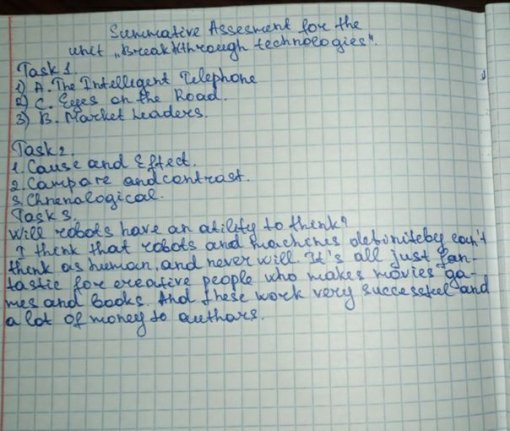 Summative Assesment for the
unit „Breakthrough technologies".
Task 1
1) A. The Intelligent Telephone
2) C. Eyes on the Road.
3) B. Market Leaders.
Task 2.
1. Cause and Effect.
2. Compare and contrast.
3. Chronological.
Task 3.
Will robots have an ability to think?
I think that robots and machines definitebey can't
think as human, and never will. It's all just fan-
tastic for creative people who makes movies ga-
mes and books. And these work very successful and
a lot of money to authors.